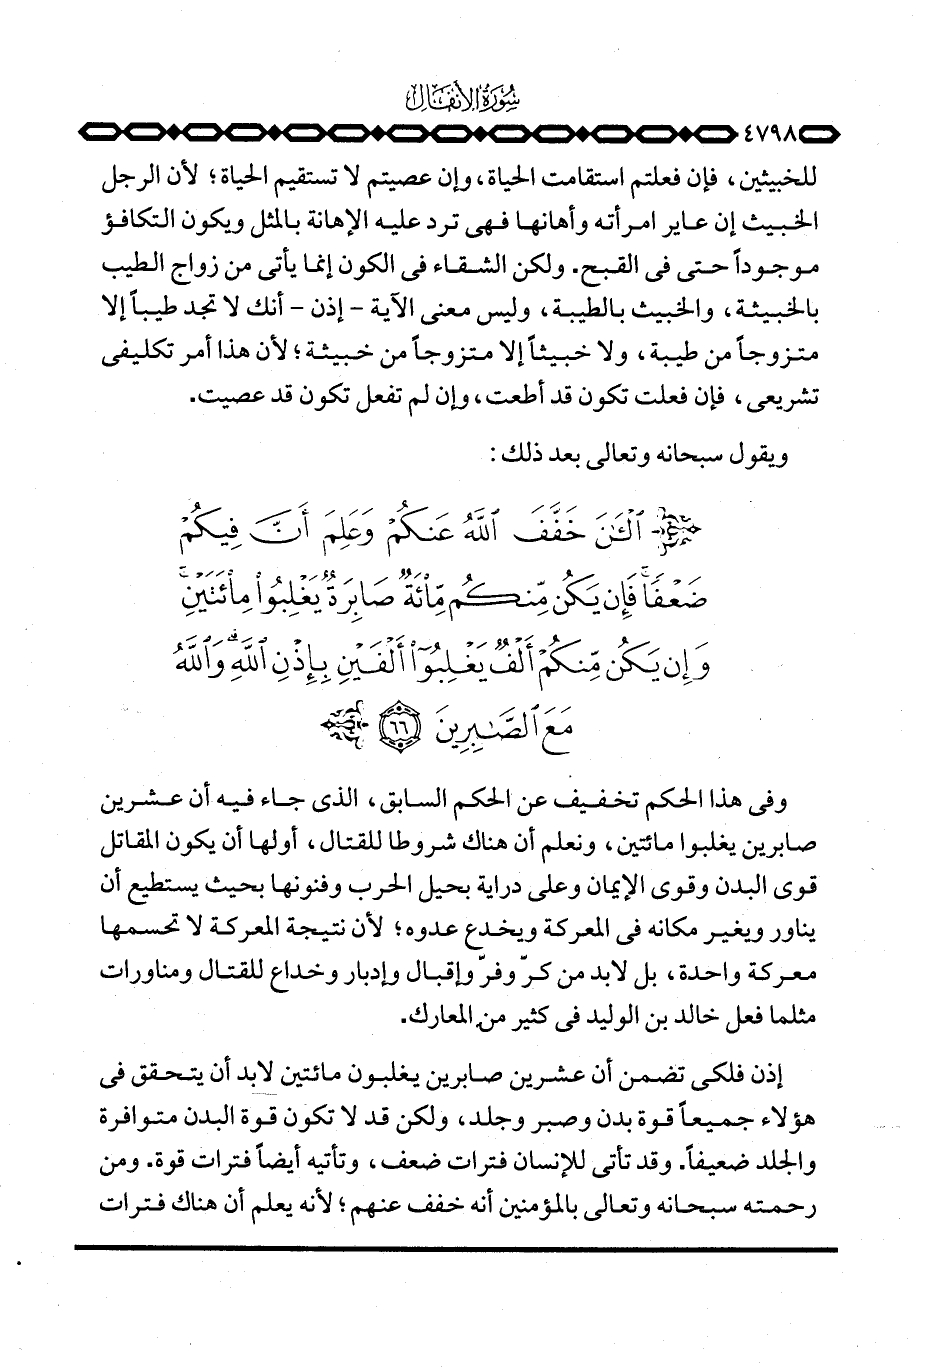 سورة الأنفال
٤٧٩٨
للخبيثين، فإن فعلتم استقامت الحياة، وإن عصيتم لا تستقيم الحياة؛ لأن الرجل
الخبيث إن عاير امرأته وأهانها فهى ترد عليه الإهانة بالمثل ويكون التكافؤ
موجوداً حتى فى القبح. ولكن الشقاء فى الكون إنما يأتى من زواج الطيب
بالخبيثة، والخبيث بالطيبة، وليس معنى الآية - إذن - أنك لا تجد طيباً إلا
متزوجاً من طيبة، ولا خبيثاً إلا متزوجاً من خبيثة؛ لأن هذا أمر تكليفى
تشريعى، فإن فعلت تكون قد أطعت، وإن لم تفعل تكون قد عصيت.
ويقول سبحانه وتعالى بعد ذلك:
﴿ ٱلْـَٰٔنَ خَفَّفَ ٱللَّهُ عَنكُمْ وَعَلِمَ أَنَّ فِيكُمْ
ضَعْفًۭا ۚ فَإِن يَكُن مِّنكُم مِّا۟ئَةٌۭ صَابِرَةٌۭ يَغْلِبُوا۟ مِا۟ئَتَيْنِ ۚ
وَإِن يَكُن مِّنكُمْ أَلْفٌۭ يَغْلِبُوٓا۟ أَلْفَيْنِ بِإِذْنِ ٱللَّهِ ۗ وَٱللَّهُ
مَعَ ٱلصَّـٰبِرِينَ ٦٦ ﴾
وفى هذا الحكم تخفيف عن الحكم السابق، الذى جاء فيه أن عشرين
صابرين يغلبوا مائتين، ونعلم أن هناك شروطا للقتال، أولها أن يكون المقاتل
قوى البدن وقوى الإيمان وعلى دراية بحيل الحرب وفنونها بحيث يستطيع أن
يناور ويغير مكانه فى المعركة ويخدع عدوه؛ لأن نتيجة المعركة لا تحسمها
معركة واحدة، بل لابد من كرّ وفرّ وإقبال وإدبار وخداع للقتال ومناورات
مثلما فعل خالد بن الوليد فى كثير من المعارك.
إذن فلكى تضمن أن عشرين صابرين يغلبون مائتين لابد أن يتحقق فى
هؤلاء جميعاً قوة بدن وصبر وجلد، ولكن قد لا تكون قوة البدن متوافرة
والجلد ضعيفاً. وقد تأتى للإنسان فترات ضعف، وتأتيه أيضاً فترات قوة. ومن
رحمته سبحانه وتعالى بالمؤمنين أنه خفف عنهم؛ لأنه يعلم أن هناك فترات